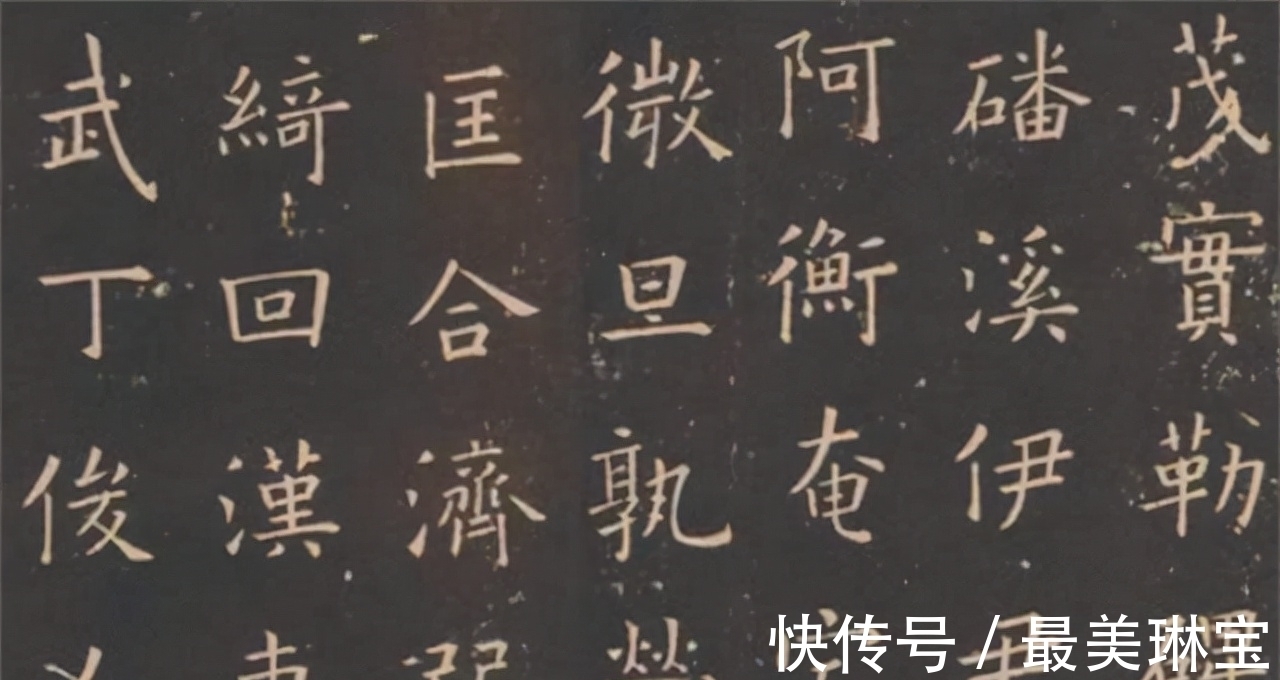 茂實勒
磻溪伊
阿衡奄
微旦孰
匡合濟
綺回漢
武丁俊
快传号 / 最美琳宝